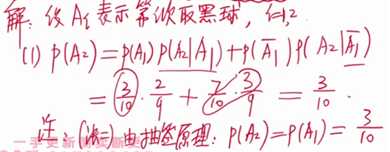 解: 设Ai表示第i次取黑球, i=1,2
(1) P(A₂)=P(A₁)P(A₂|A₁)+P(Ā₁)P(A₂|Ā₁)
= 3/10 · 2/9 + 7/10 · 3/9 = 3/10 .
注: (法二) 由抽签原理: P(A₂)=P(A₁)= 3/10